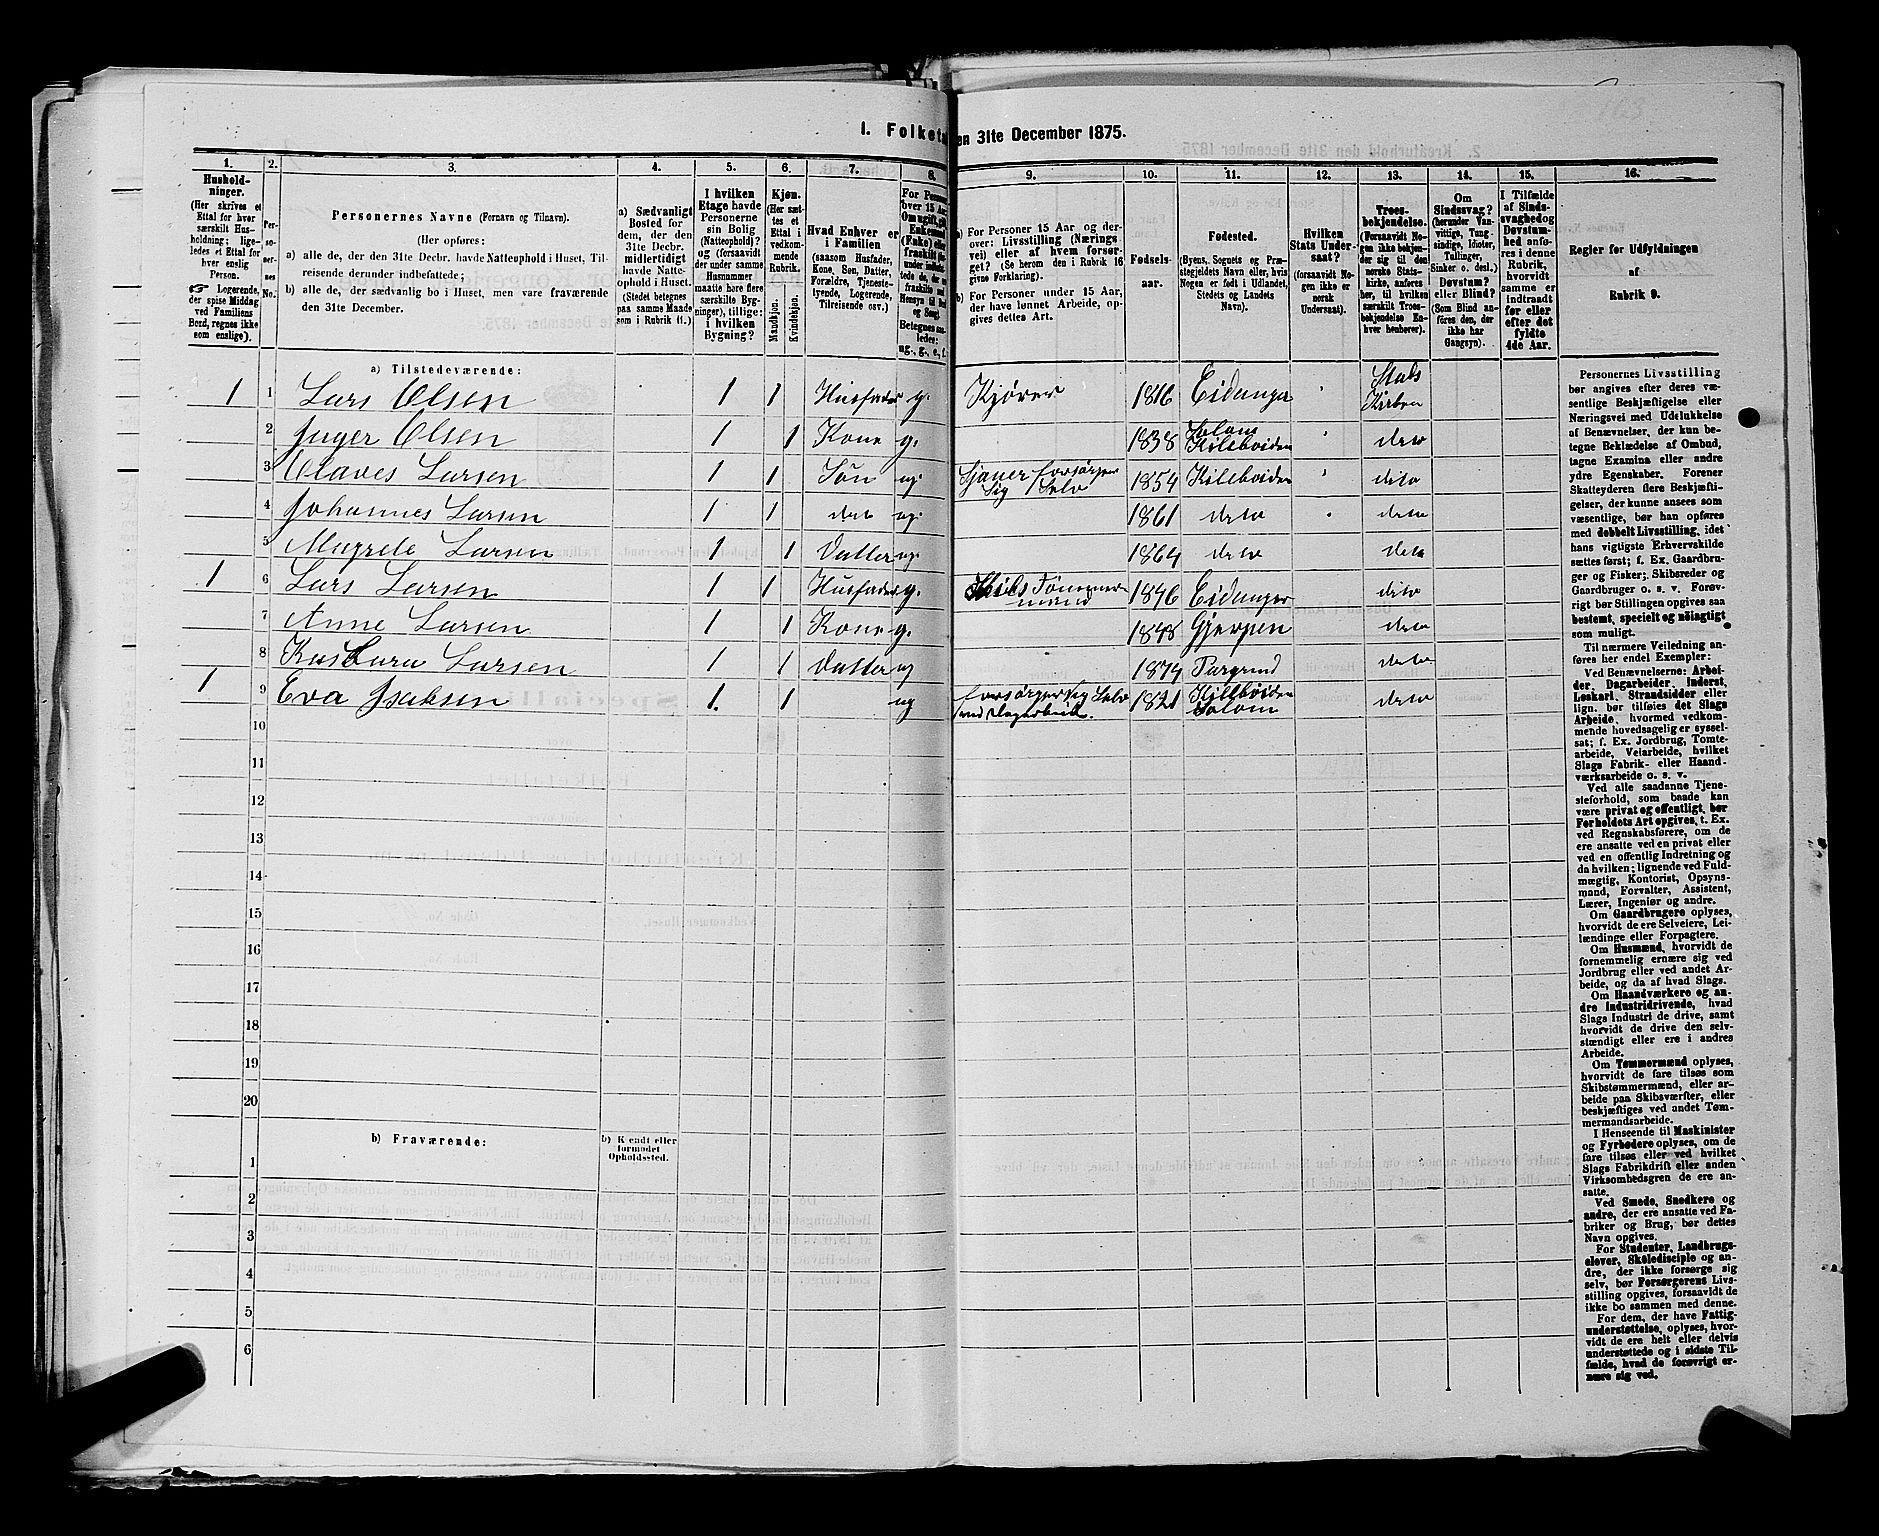 I. Folketa
en 31te December 1875.
1. 2. 3. 4. 5. 6. 7. 8. 9. 10. 11. 12. 13. 14. 15. 16.
Hushold-
ninger.
(Her skrives et
Ettal for hver
særskilt Hus-
holdning; lige-
ledes et Ettal
for hver enslig
Person.
☞ Logerende,
der spise Middag
ved Familiens
Bord, regnes ikke
som enslige).
Per-
so-
ner-
nes
No.
Personernes Navne (Fornavn og Tilnavn).
(Her opføres:
a) alle de, der den 31te Decbr. havde Natteophold i Huset, Til-
reisende derunder indbefattede;
b) alle de, der sædvanlig bo i Huset, men vare fraværende
den 31te December.
a) Sædvanligt
Bosted for
dem, der den
31te Decbr.
midlertidigt
havde Natte-
ophold i Huset.
(Stedet betegnes
paa samme Maade
som i Rubrik 11.)
I hvilken
Etage havde
Personerne
sin Bolig
(Natteophold)?
og (forsaavidt
der under samme
Husnummer
maatte høre flere
særskilte Byg-
ninger), tillige:
i hvilken
Bygning?
Kjøn.
(Her sæt-
tes et
Ettal i
vedkom-
mende
Rubrik.
Mandkjøn.
Kvindekjøn.
Hvad Enhver er
i Familien
(saasom Husfader,
Kone, Søn, Datter,
Forældre, Tjeneste-
tyende, Logerende,
Tilreisende osv.)
For Person
over 15 Aar
Om ugift, g
Enkeman
(Enke) elle
fraskilt
Betegnes saa-
ledes:
ug., g., e., f.
a) For Personer 15 Aar og der-
over: Livsstilling (Nærings-
vei) eller af hvem forsør-
get? (Se herom den i Rubrik 16
givne Forklaring).
b) For Personer under 15 Aar,
der have lønnet Arbeide, op-
gives dettes Art.
Fødsels-
aar.
Fødested.
(Byens, Sognets og Præ-
stegjeldets Navn eller, hvis
Nogen er født i Udlandet,
Stedets og Landets
Navn).
Hvilken
Stats Under-
saat?
(forsaavidt No-
gen ikke er
norsk
Undersaat).
Troes-
bekjendelse.
(Forsaavidt No-
gen ikke bekjen-
der sig til den
norske Stats-
kirke, anføres
her, til hvilken
særskilt Troes-
bekjendelse En-
hver henhører).
Om
Sindssvag?
(herunder Van-
vittige, Tung-
sindige, Idioter,
Tullinger,
Sinker o. desl.)
Døvstum?
eller Blind?
(Som Blind an-
føres den, der
ikke har
Gangsyn).
I Tilfælde
af Sinds-
svaghed og
Døvstum-
hed anfø-
res i denne
Rubrik,
hvorvidt
samme er
indtraadt
før eller
efter det
fyldte
4de Aar.
Regler for Udfyldningen
af
Rubrik 9.
a) Tilstedeværende:
1 1 Lars Olsen 1 1 Husfader g. Kjører 1816 Eidanger Stats Kirken
2 Inger Olsen 1 1 Kone g. 1838 Solom Kileboiden deto
3 Olaves Larsen 1 1 Søn ug. Sjauer forsørger Sig Selv 1854 Kileboiden deto
4 Johannes Larsen 1 1 deto ug. 1861 deto deto
5 Magrete Larsen 1 1 Datter ug. 1864 deto deto
1 6 Lars Larsen 1 1 Husfader g. Skibs Tømmermand 1846 Eidanger deto
7 Anne Larsen 1 1 Kone g. 1848 Gjerpen deto
8 Larsen 1 1 Datter ug 1874 Porgrund deto
1 9 Eva Isaksen 1. 1 ug forsørger sig Selv ved Dagarbeide. 1821 Killboiden Solom deto
10
11
12
13
14
15
16
17
18
19
20
b) Fraværende:
b) Kjendt eller
formodet
Opholdssted.
1
2
3
4
5
6
Personernes Livsstilling
bør angives efter deres væ-
sentlige Beskjæftigelse eller
Næringsvei med Udelukkelse
af Benævnelser, der kun be-
tegne Beklædelse af Ombud,
tagne Examina eller andre
ydre Egenskaber. Forener
Skatteyderen flere Beskjæfti-
gelser, der kunne ansees som
væsentlige, bør han opføres
med dobbelt Livsstilling, idet
hans vigtigste Erhvervskilde
sættes først; f. Ex. Gaardbru-
ger og Fisker; Skibsreder og
Gaardbruger o. s. v. Forøv-
rigt bør Stillingen opgives saa
bestemt, specielt og nöiagtigt
som muligt.
Til nærmere Veiledning an-
føres her endel Exempler:
Ved Benævnelserne: Arbei-
der, Dagarbeider, Inderst,
Løskarl, Strandsidder eller
lign. bør tilføies det Slags
Arbeide, hvormed vedkom-
mende hovedsagelig er syssel-
sat; f. Ex. Jordbrug, Tomte-
arbeide, Veiarbeide, hvilket
Slags Fabrik- eller Haand-
værksarbeide o. s. v.
Ved alle saadanne Tjene-
steforhold, som baade kan
være privat og offentligt, bør
Forholdets Art opgives, t. Ex.
ved Regnskabsførere, om de
ere ansatte ved en privat eller
ved en offentlig Indretning og
da hvilken; lignende ved Fuld-
mægtig, Kontorist, Opsyns-
mand, Forvalter, Assistent,
Lærer, Ingeniør og andre.
Om Gaardbrugere oplyses,
hvorvidt de ere Selveiere, Lei-
lændinge eller Forpagtere.
Om Husmænd, hvorvidt de
fornemmelig ernære sig ved
Jordbrug eller ved andet Ar-
beide, og da af hvad Slags.
Om Haandværkere og an-
dre Industridrivende, hvad
Slags Industri de drive, samt
hvorvidt de drive den selv-
stændigt eller ere i andres
Arbeide.
Om Tømmermænd oplyses,
hvorvidt de fare tilsøs som
Skibstømmermænd, eller ar-
beide paa Skibsværfter, eller
beskjæftiges ved andet Tøm-
mermandsarbeide.
I Henseende til Maskinister
og Fyrbødere oplyses, om de
fare tilsøs eller ved hvilket
Slags Fabrikdrift eller anden
Virksomhedsgren de ere an-
satte.
Ved Smede, Snedkere og
andre, der ere ansatte ved Fa-
briker og Brug, bør dettes
Navn opgives.
For Studenter, Landbrugs-
elever, Skoledisciple og an-
dre, der ikke forsørge sig
selv, bør Forsørgerens Livs-
stilling opgives, forsaavidt de
ikke bo sammen med denne.
For dem, der have Fattig-
understøttelse, oplyses, hvor-
vidt de ere helt eller delvis
understøttede og i sidste Til-
fælde, hvad de forøvrigt er-
nære sig ved.